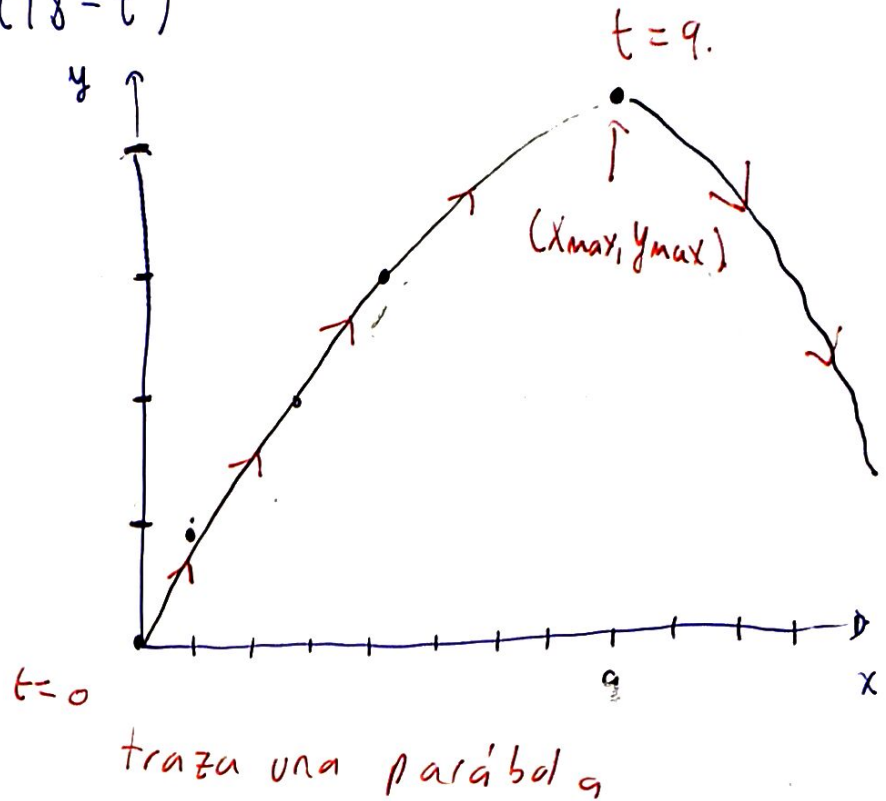 (18-t)
t = 9.
y
(Xmax, ymax)
9
t=0
X
traza una parábola